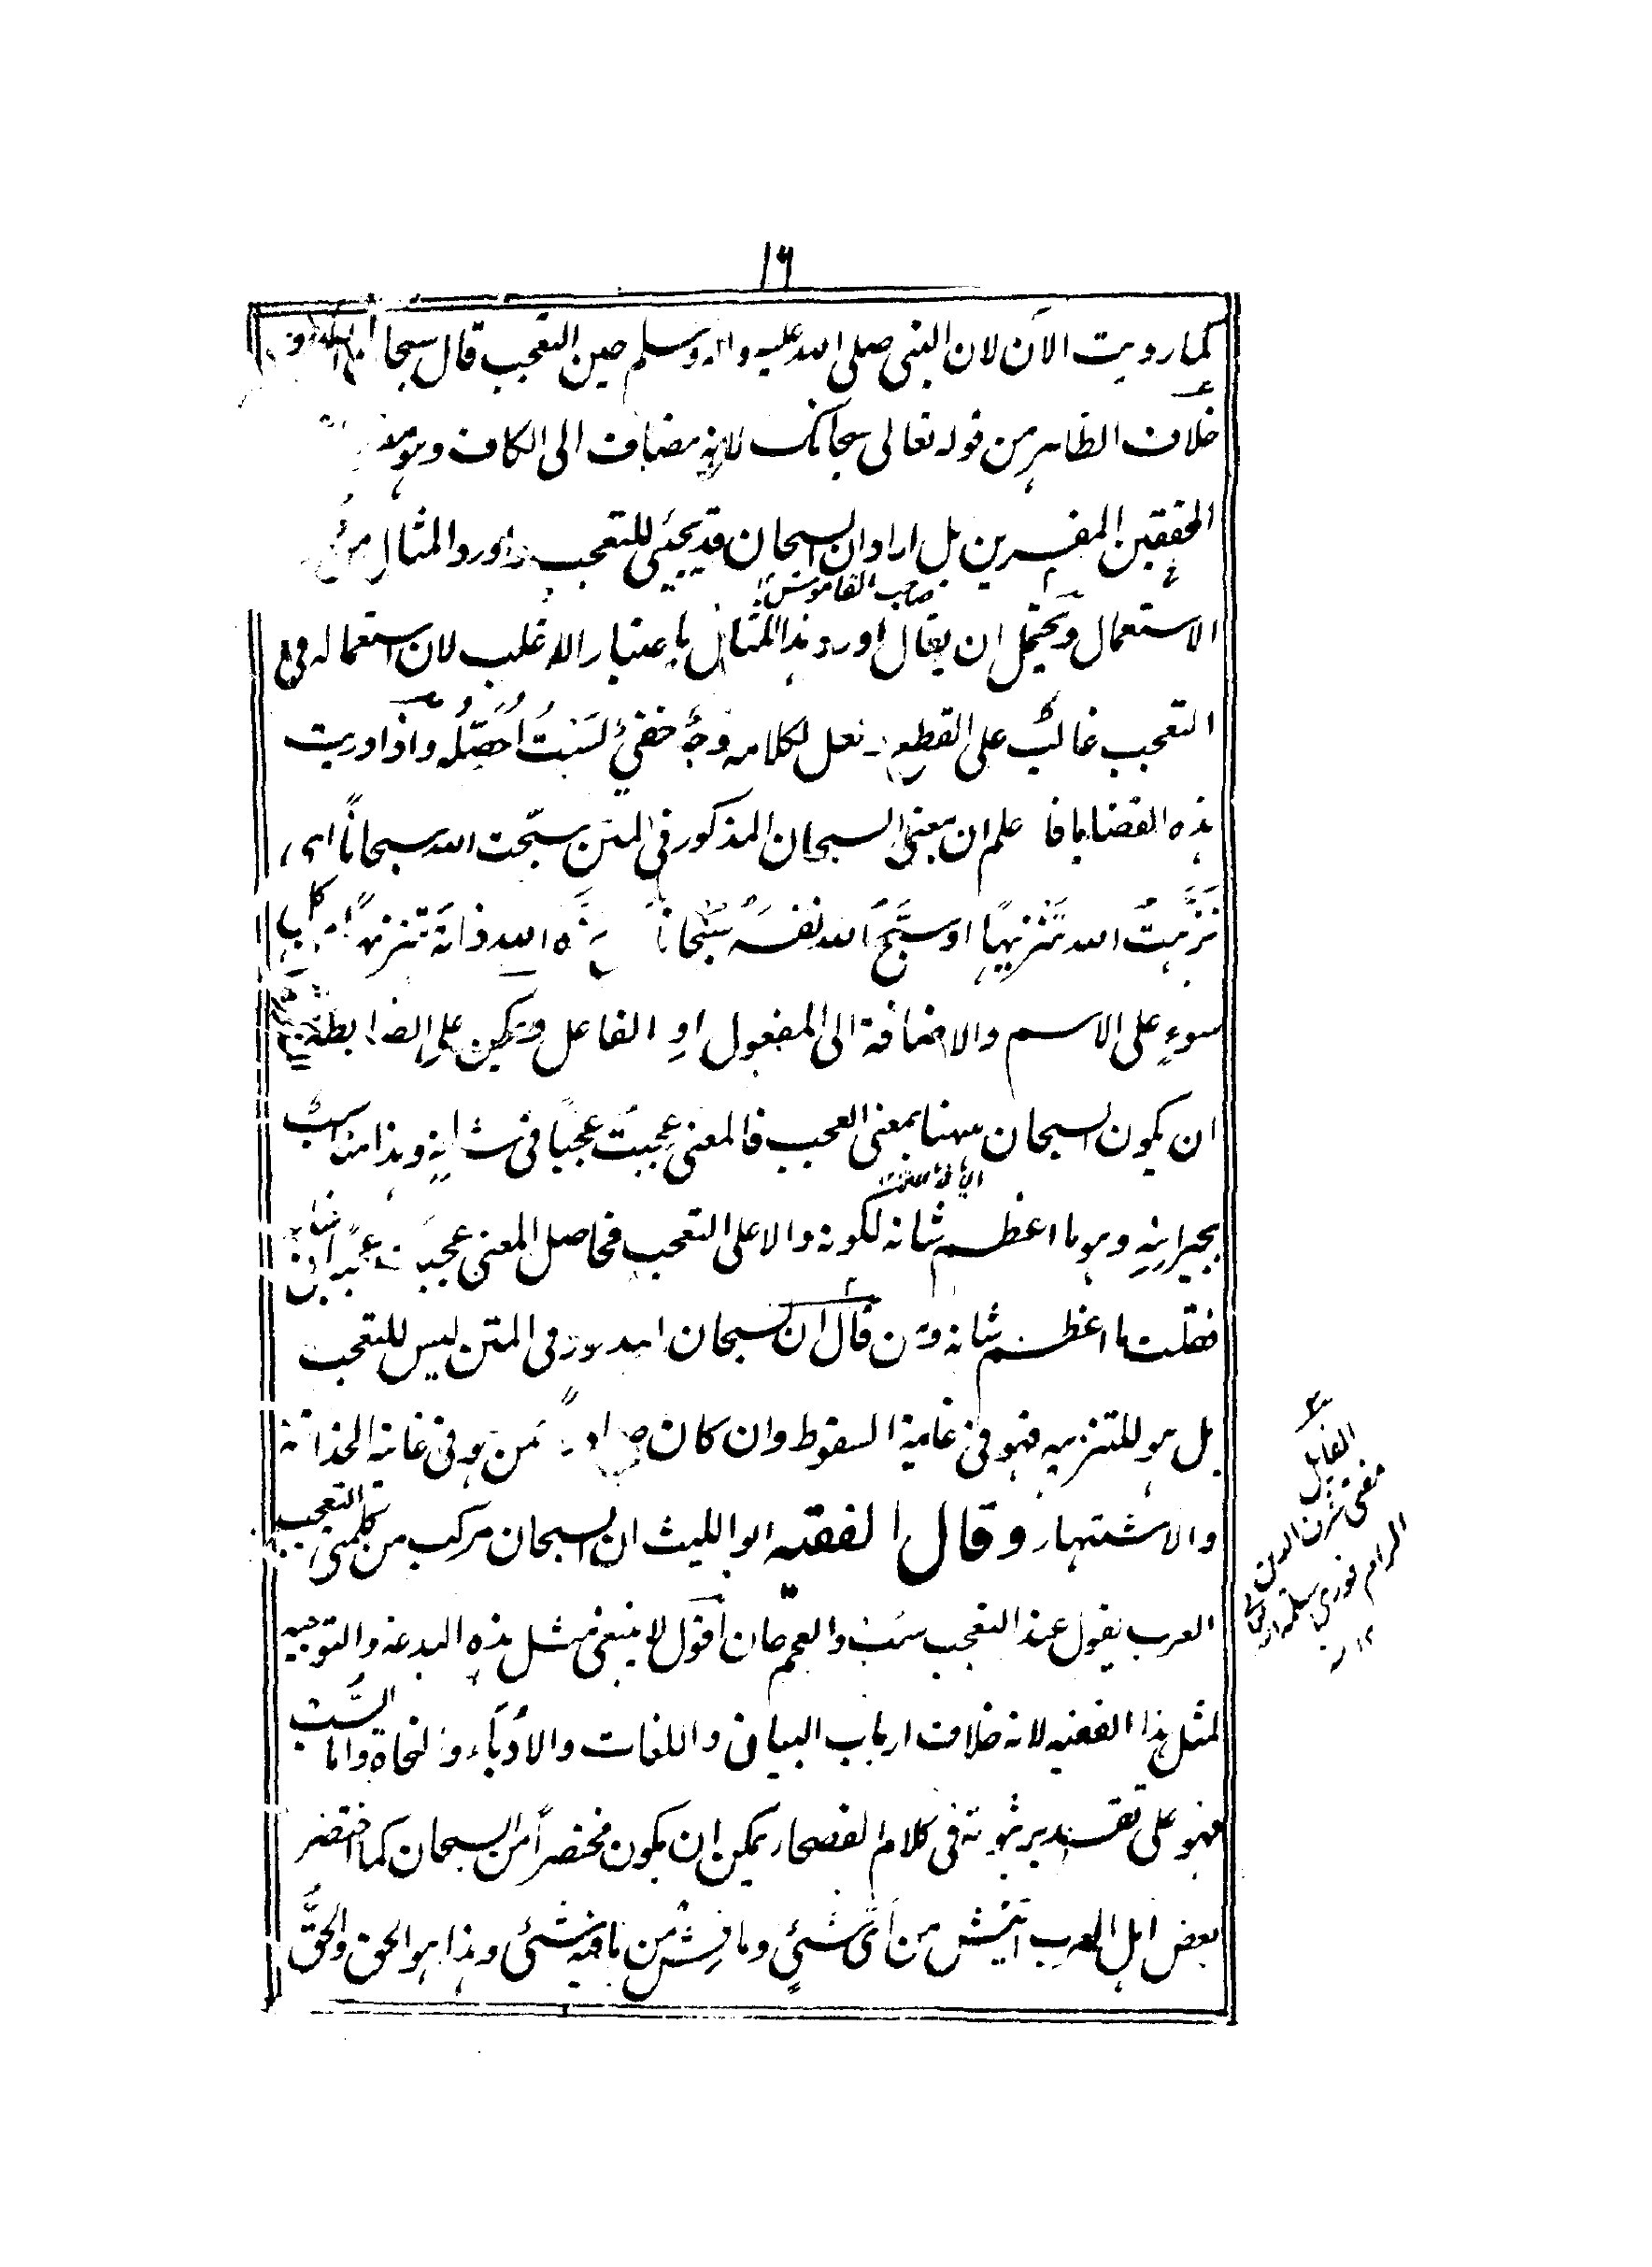 ١٦
كما رويت الآن لان النبى صلى الله عليه واله وسلم حين التعجب قال سبحان الله وهو
خلاف الظاهر من قوله تعالى سبحانك لانه مضاف الى الكاف وهو
المحققين المفسرين بل اراد ان السبحان قد يجيئ للتعجب واورد المثال من
صاحب القاموس
الاستعمال ويحتمل ان يقال اورد هذا المثال باعتبار الاغلب لان استعماله فى
التعجب غالبٌ على القطع لعل لكلامه وجهٌ خفيٌ لَسْتُ اُحَصِّلُه واذا دريت
هذه القضايا فاعلم ان معنى السبحان المذكور فى المتن سبّحت الله سبحاناً اى
نَزَّهتُ الله تَنْزِيهًا او سَبَّحَ الله نفسَه سُبْحاناً نزّه الله ذاتَه تنزيهًا من كل
سوءٍ على الاسم والاضافة الى المفعول او الفاعل ويمكن على الضابطة
ان يكون السبحان ههنا بمعنى العجب فالمعنى عجبت عجبًا فى شانِه وهذا مناسبٌ
بجيرانِهِ وهو ما اعظم شانه لكونه دالا على التعجب فحاصل المعنى عجبت عجبًا فى شانه
فقلت ما اعظم شانه ومن قال ان السبحان المذكور فى المتن ليس للتعجب
بل هو للتنزيه فهو فى غاية السقوط وان كان صادراً ممن هو فى غاية الحذاقة
والاشتهار وقال الفقيه ابو الليث ان السبحان مركب من كلمتى التعجب
العرب يقول عند التعجب سُبْ والعجم حان اقول لا ينبغى مثل هذه البدعة والتوجيه
لمثل هذا الفقيه لانه خلاف ارباب البيان واللغات والاُدَبَاء والنحاة واما السُّب
فهو على تقدير ثبوته فى كلام الفصحاء يمكن ان يكون مختصراً من السبحان كما اختصر
بعض اهل العرب اَيْش من اَىّ شيئٍ وما فِيش من ما فيه شئ وهذا هو الحق والحقُّ
القايل
مفتى شرف الدين
الرامفورى سلمه الله
١٢